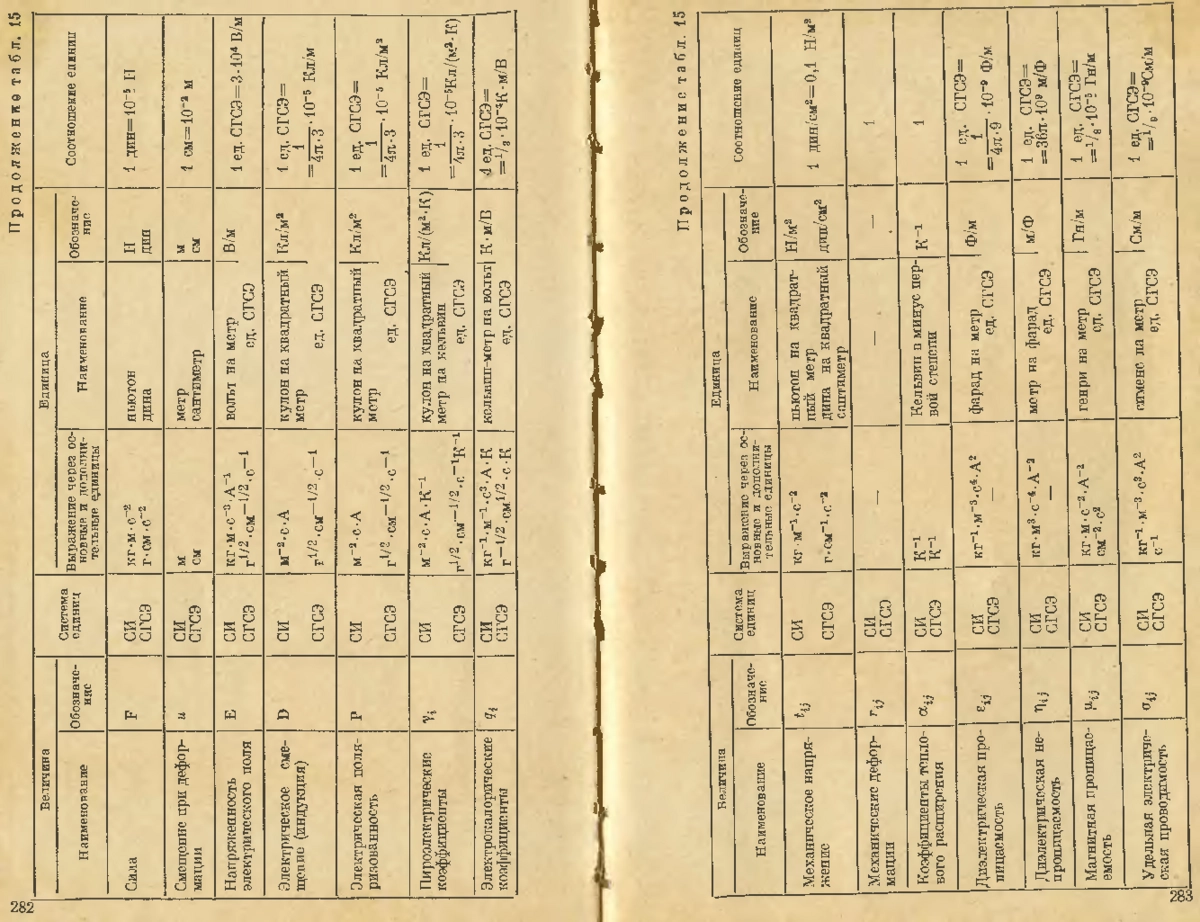 Продолжение табл. 15
Величина
Единица
Наименование
Обозначе-
ние
Система
единиц
Выражение через ос-
новные и дополни-
тельные единицы
Наименование
Обозначе-
ние
Соотношение единиц
Сила
F
СИ
СГСЭ
кг·м·с⁻²
г·см·с⁻²
ньютон
дина
Н
дин
1 дин=10⁻⁵ Н
Смещение при дефор-
мации
u
СИ
СГСЭ
м
см
метр
сантиметр
м
см
1 см=10⁻² м
Напряженность
электрического поля
E
СИ
СГСЭ
кг·м·с⁻³·А⁻¹
г¹/²·см—¹/²·с—¹
вольт на метр
ед. СГСЭ
В/м
1 ед. СГСЭ=3·10⁴ В/м
Электрическое сме-
щение (индукция)
D
СИ
СГСЭ
м⁻²·с·А
г¹/²·см—¹/²·с—¹
кулон на квадратный
метр
ед. СГСЭ
Кл/м²
1 ед. СГСЭ=
= 1/4π·3 ·10⁻⁵ Кл/м
Электрическая поля-
ризованность
P
СИ
СГСЭ
м⁻²·с·А
г¹/²·см—¹/²·с—¹
кулон на квадратный
метр
ед. СГСЭ
Кл/м²
1 ед. СГСЭ=
= 1/4π·3 ·10⁻⁵ Кл/м²
Пироэлектрические
коэффициенты
γᵢ
СИ
СГСЭ
м⁻²·с·А·К⁻¹
г¹/²·см—¹/²·с—¹К⁻¹
кулон на квадратный
метр на кельвин
ед. СГСЭ
Кл/(м²·К)
1 ед. СГСЭ=
= 1/4π·3 ·10⁻⁵Кл/(м²·К)
Электрокалорические
коэффициенты
qᵢ
СИ
СГСЭ
кг⁻¹·м⁻¹·с³·А·К
г—¹/²·см¹/²·с·К
кельвин-метр на вольт
ед. СГСЭ
К·м/В
1 ед. СГСЭ=
282
Продолжение табл. 15
Величина
Единица
Наименование
Обозначе-
ние
Система
единиц
Выражение через ос-
новные и дополни-
тельные единицы
Наименование
Обозначе-
ние
Соотношение единиц
Механическое напря-
жение
tᵢⱼ
СИ
СГСЭ
кг·м⁻¹·с⁻²
г·см⁻¹·с⁻²
ньютон на квадрат-
ный метр
дина на квадратный
сантиметр
Н/м²
дин/см²
1 дин/см²=0,1 Н/м²
Механические дефор-
мации
rᵢⱼ
СИ
СГСЭ
—
—
—
1
Коэффициенты тепло-
вого расширения
αᵢⱼ
СИ
СГСЭ
К⁻¹
К⁻¹
Кельвин в минус пер-
вой степени
К⁻¹
1
Диэлектрическая про-
ницаемость
εᵢⱼ
СИ
СГСЭ
кг⁻¹·м⁻³·с⁴·А²
—
фарад на метр
ед. СГСЭ
Ф/м
1 ед. СГСЭ=
= 1/4π·9 ·10⁻⁹ Ф/м
Диэлектрическая не-
проницаемость
ηᵢⱼ
СИ
СГСЭ
кг·м³·с⁻⁴·А⁻²
—
метр на фарад
ед. СГСЭ
м/Ф
1 ед. СГСЭ=
=36π·10⁹ м/Ф
Магнитная проницае-
емость
μᵢⱼ
СИ
СГСЭ
кг·м·с⁻²·А⁻²
см⁻²·с²
генри на метр
ед. СГСЭ
Гн/м
1 ед. СГСЭ=
Удельная электриче-
ская проводимость
σᵢⱼ
СИ
СГСЭ
кг⁻¹·м⁻³·с³·А²
с⁻¹
сименс на метр
ед. СГСЭ
См/м
1 ед. СГСЭ=
=¹/₉·10⁻⁹См/м
283